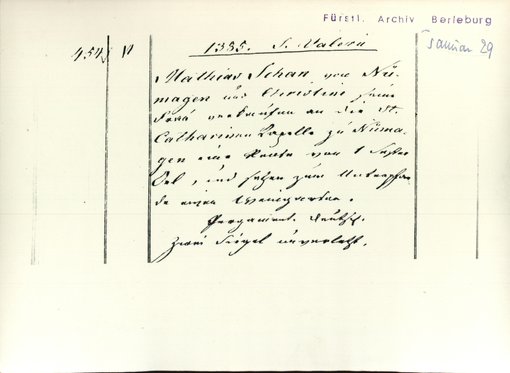 Fürstl. Archiv Berleburg
Januar 29
454 V 1335. S. Valerii
Mathias Schan von Nü-
magen und Christine seine
Frau verkaufen an die St.
Catharinen Capelle zu Numa-
gen eine Rente von 1 Sester
Oel, und setzen zum Unterpfan-
de einen Weingarten.
Pergament. deutsch.
Zwei Siegel unverletzt.